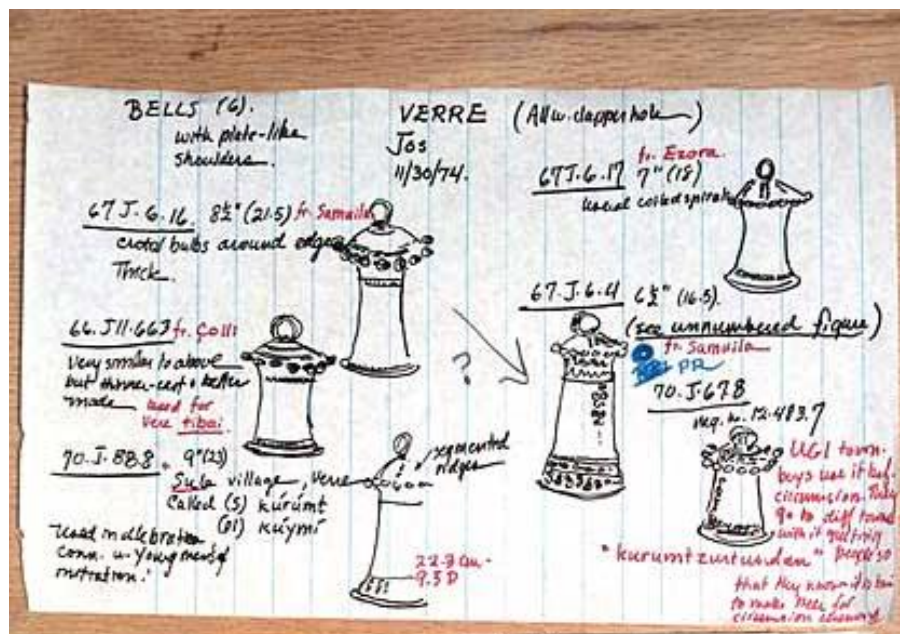 BELLS (6).
with plate-like
shoulders.
VERRE (All w. clapper hole)
Jos
11/30/74.
67 J.6.16 8½" (21.5) fr. Samuila
crotal bulbs around edge
Thick.
66.J11.663 fr. Colli
Very similar to above
but thinner-cast & better
made used for
Vere tibai.
70.J.888. 9" (23)
Sula village, Verre
Called (S) kúrúmt
(Pl) kúymí
Used in celebration
conn. w. young men's
initiation.
segmented
ridges
22.3 cm.
9.3 D
67J.6.17 fr. Ezora.
7" (18)
usual coiled spirals
67.J.6.4 6½" (16.5).
(see unnumbered figure)
fr. Samuila
PR
?
70.J.678
neg. no. 12.483.7
UGI town.
boys use it bef.
circumcision. They
go to diff towns
with it
people so
that they know it is time
to make beer for
circumcision ceremony